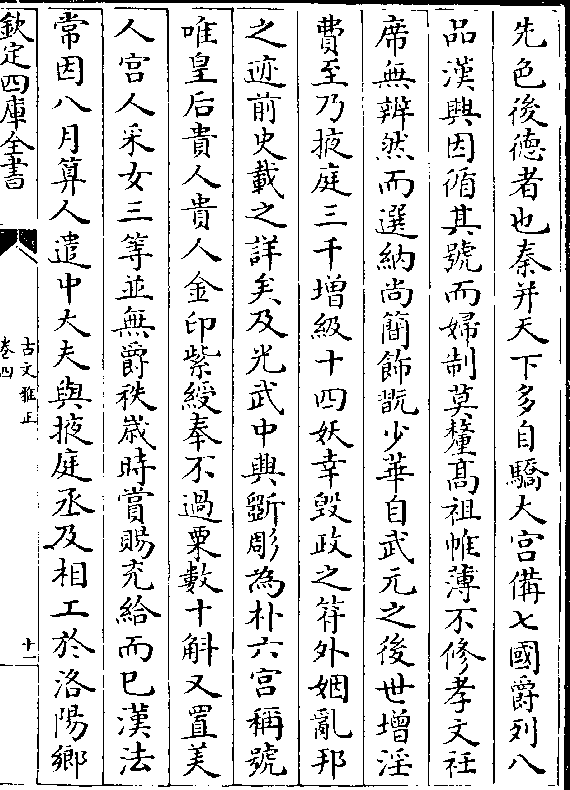 先色後德者也秦并天下多自驕大宮備七國爵列八
品漢興因循其號而婦制莫釐髙祖帷薄不修孝文衽
席無辨然而選納尚簡飾翫少華自武元之後世增淫
費至乃掖庭三千增級十四妖幸毀政之符外姻亂邦
之迹前史載之詳矣及光武中興斲彫為朴六宮稱號
唯皇后貴人貴人金印紫綬奉不過粟數十斛又置美
人宮人采女三等並無爵秩嵗時賞賜充給而已漢法
常因八月算人遣中大夫與掖庭丞及相工於洛陽鄉
欽定四庫全書
古文雅正
卷四
十一